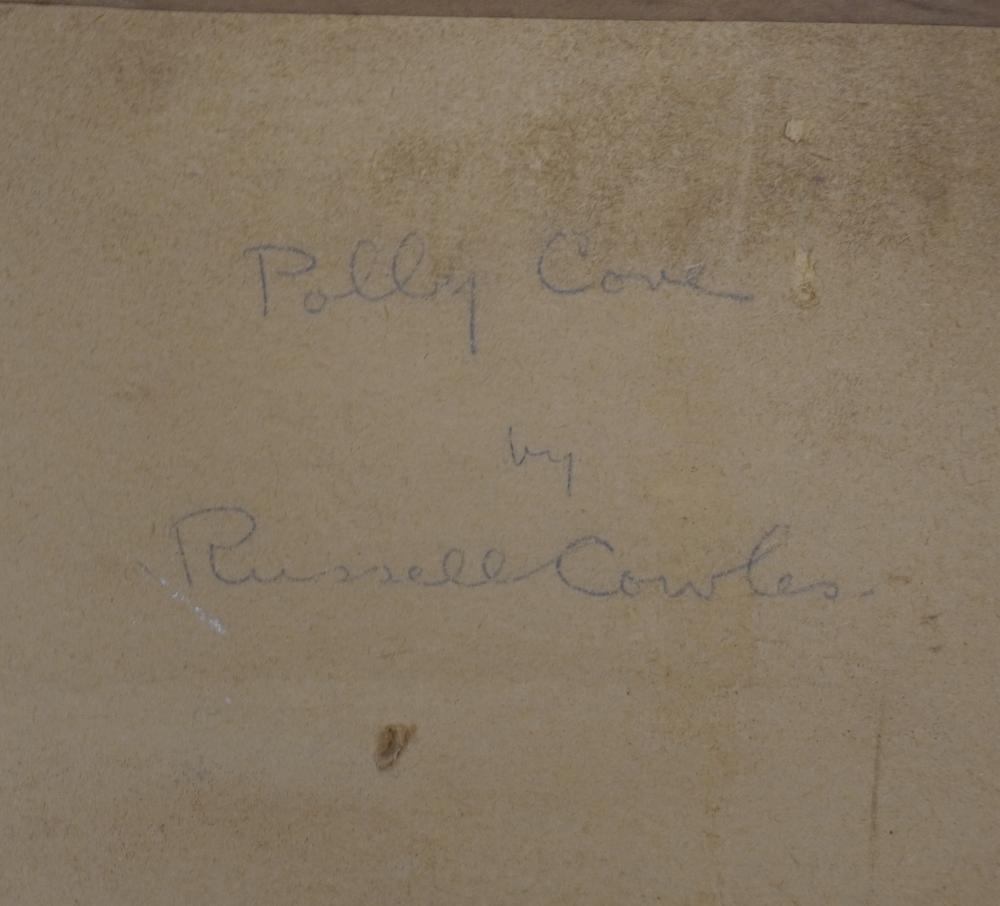 Polly Cove
by
Russell Cowles.